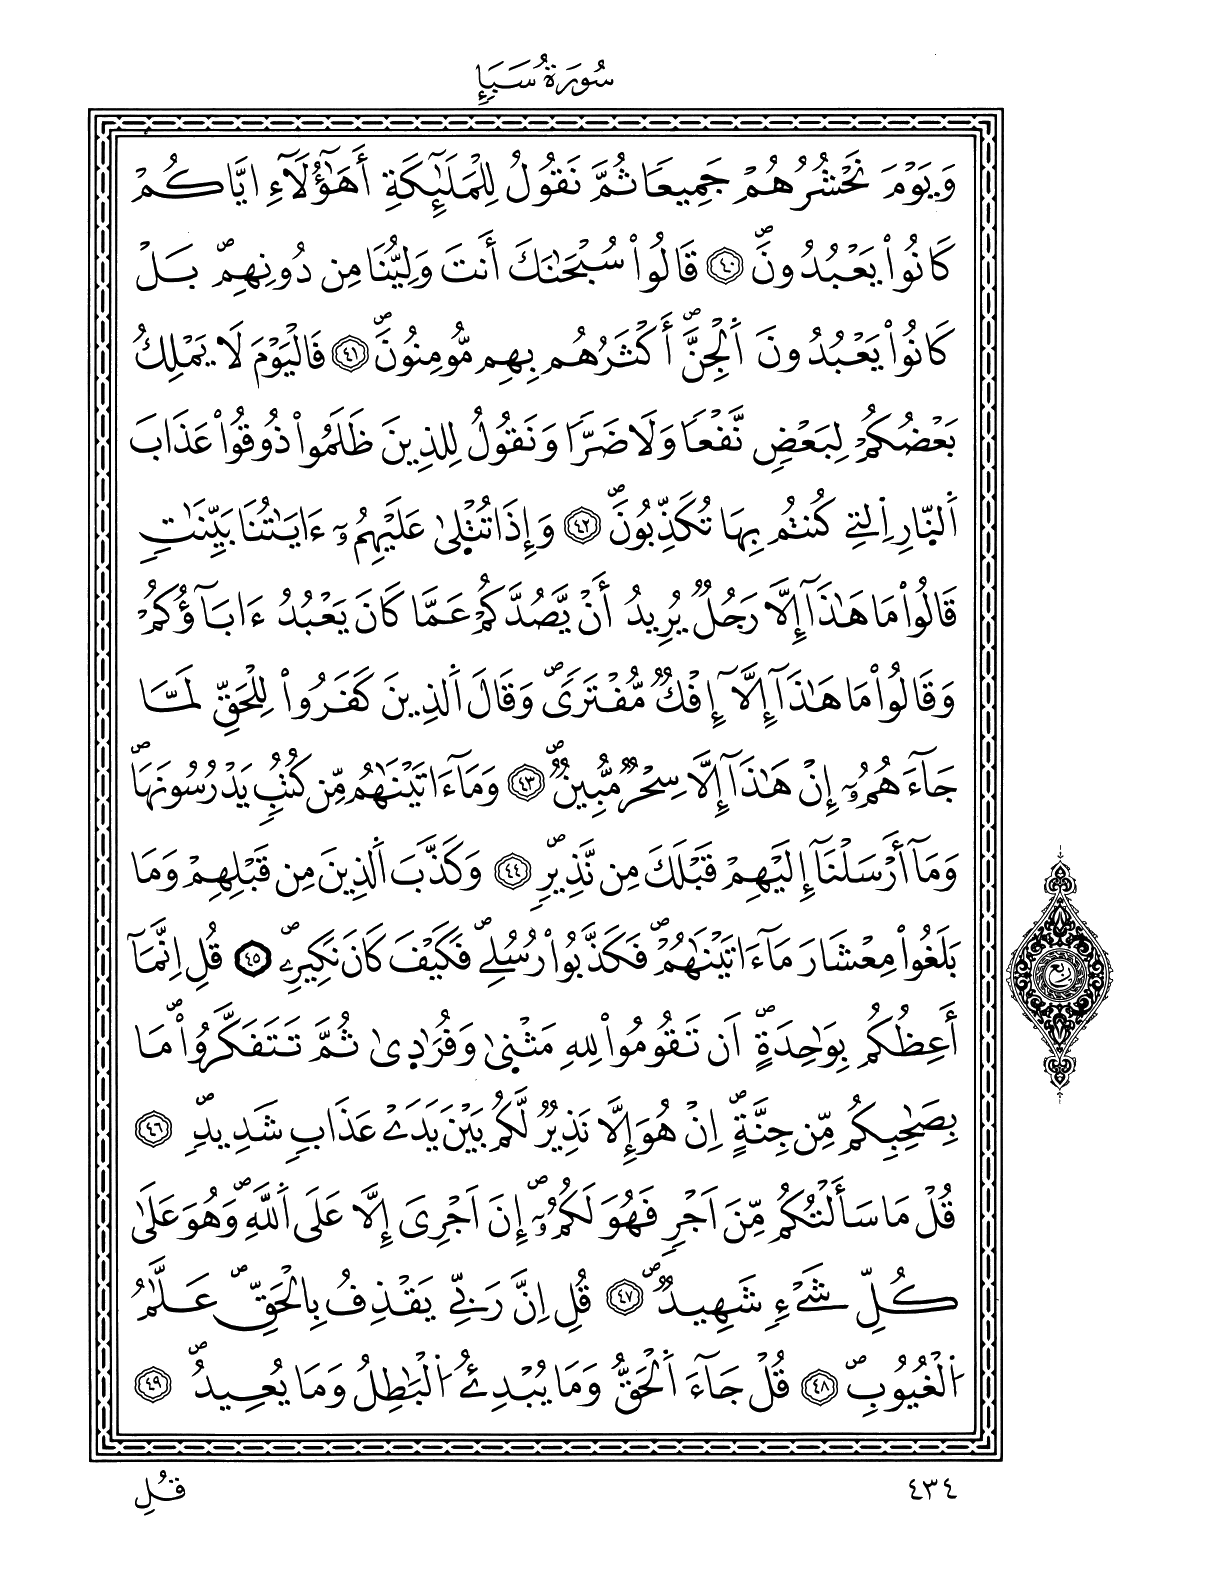 سُورَةُ سَبَإٍ
وَيَوْمَ نَحْشُرُهُمْ جَمِيعاً ثُمَّ نَقُولُ لِلْمَلَٰٓئِكَةِ أَهَٰٓؤُلَآءِ ايَّاكُمْ
كَانُواْ يَعْبُدُونَۖ ٤٠ قَالُواْ سُبْحَٰنَكَ أَنتَ وَلِيُّنَا مِن دُونِهِمۖ بَلْ
كَانُواْ يَعْبُدُونَ اَ۬لْجِنَّۖ أَكْثَرُهُم بِهِم مُّومِنُونَۖ ٤١ فَالْيَوْمَ لَا يَمْلِكُ
بَعْضُكُمْ لِبَعْضٖ نَّفْعاً وَلَا ضَرّاً وَنَقُولُ لِلذِينَ ظَلَمُواْ ذُوقُواْ عَذَابَ
اَ۬لنّ۪ارِ اِ۬لتِے كُنتُم بِهَا تُكَذِّبُونَۖ ٤٢ وَإِذَا تُتْل۪يٰ عَلَيْهِمُۥٓ ءَايَٰتُنَا بَيِّنَٰتٖ
قَالُواْ مَا هَٰذَآ إِلَّا رَجُلٞ يُرِيدُ أَنْ يَّصُدَّكُمْ عَمَّا كَانَ يَعْبُدُ ءَابَآؤُكُمْ
وَقَالُواْ مَا هَٰذَآ إِلَّآ إِفْكٞ مُّفْتَريٗۖ وَقَالَ اَ۬لذِينَ كَفَرُواْ لِلْحَقِّ لَمَّا
جَآءَهُمُۥٓ إِنْ هَٰذَآ إِلَّا سِحْرٞ مُّبِينٞۖ ٤٣ وَمَآ ءَاتَيْنَٰهُم مِّن كُتُبٖ يَدْرُسُونَهَاۖ
وَمَآ أَرْسَلْنَآ إِلَيْهِمْ قَبْلَكَ مِن نَّذِيرٖۖ ٤٤ وَكَذَّبَ اَ۬لذِينَ مِن قَبْلِهِمْ وَمَا
بَلَغُواْ مِعْشَارَ مَآ ءَاتَيْنَٰهُمْۖ فَكَذَّبُواْ رُسُلِےۖ فَكَيْفَ كَانَ نَكِيرِۦۖ ٤٥ قُلِ اِنَّمَآ
أَعِظُكُم بِوَٰحِدَةٍۖ اَن تَقُومُواْ لِلهِ مَثْن۪يٰ وَفُرَٰد۪يٰ ثُمَّ تَتَفَكَّرُواْۖ مَا
بِصَٰحِبِكُم مِّن جِنَّةٍۖ اِنْ هُوَ إِلَّا نَذِيرٞ لَّكُم بَيْنَ يَدَےْ عَذَابٖ شَدِيدٖۖ ٤٦
قُلْ مَا سَأَلْتُكُم مِّنَ اَجْرٖ فَهُوَ لَكُمُۥٓۖ إِنَ اَجْرِيَ إِلَّا عَلَي اَ۬للَّهِۖ وَهُوَ عَلَيٰ
كُلِّ شَےْءٖ شَهِيدٞۖ ٤٧ قُلِ اِنَّ رَبِّے يَقْذِفُ بِالْحَقِّۖ عَلَّٰمُ
اُ۬لْغُيُوبِۖ ٤٨ قُلْ جَآءَ اَ۬لْحَقُّ وَمَا يُبْدِئُ اُ۬لْبَٰطِلُ وَمَا يُعِيدُۖ ٤٩
ربع
٤٣٤
قُلِ